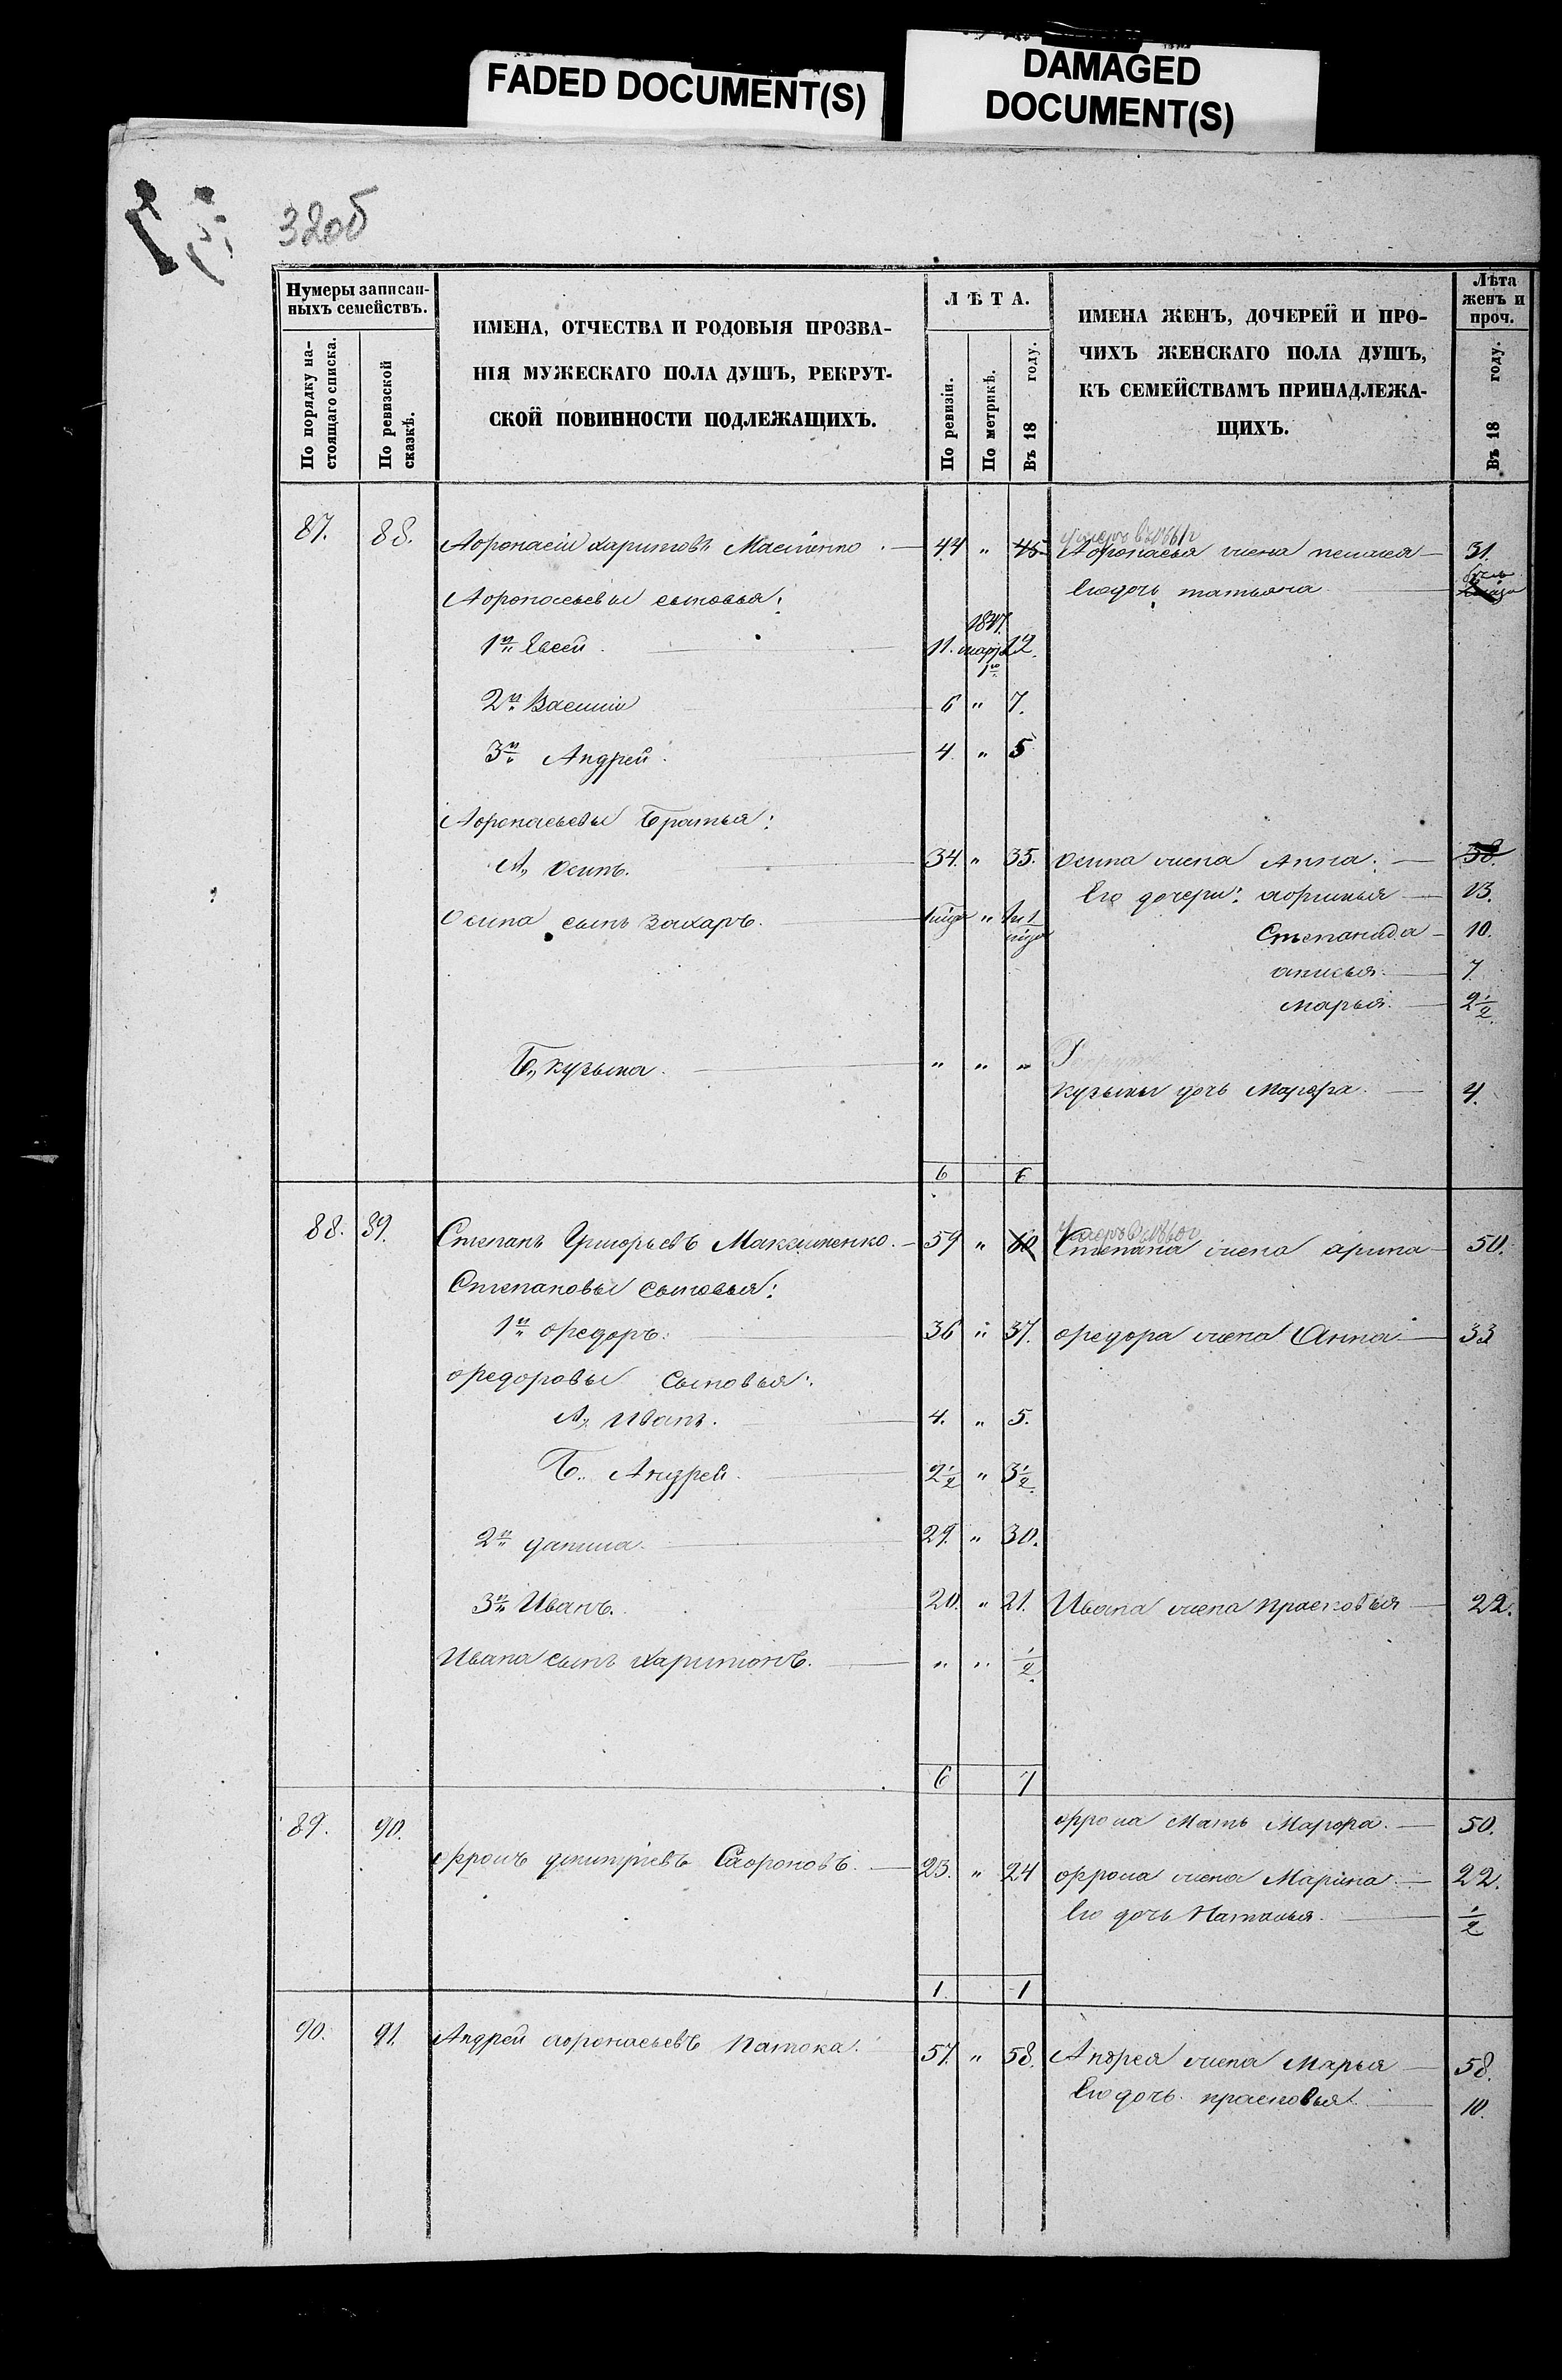 FADED DOCUMENT(S)
DAMAGED
DOCUMENT(S)
32об
Нумеры записан-
ныхъ семействъ.
По порядку на-
стоящаго списка.
По ревизской
сказкѣ.
ИМЕНА, ОТЧЕСТВА И РОДОВЫЯ ПРОЗВА-
НІЯ МУЖЕСКАГО ПОЛА ДУШЪ, РЕКРУТ-
СКОЙ ПОВИННОСТИ ПОДЛЕЖАЩИХЪ.
ЛѢТА.
По ревизіи.
По метрикѣ.
Въ 18 году.
ИМЕНА ЖЕНЪ, ДОЧЕРЕЙ И ПРО-
ЧИХЪ ЖЕНСКАГО ПОЛА ДУШЪ,
КЪ СЕМЕЙСТВАМЪ ПРИНАДЛЕЖА-
ЩИХЪ.
Лѣта
женъ и
проч.
Въ 18 году.
умеръ в 1861 г
87. 88. Афонасій харитовъ 44 " 45 Афонасья жена 31.
Афонасьевы сыновья: Его дочь татьяна
1й Евсей 11. 1847. март 1го 12.
2й Василій 6 " 7.
3й Андрей 4. " 5
Афонасьевы братья:
А, Осипъ. 34. " 35. Осипа жена Анна: 38.
Его дочери: афимья 13.
Осипа сынъ Захаръ. 1 года " 1 и 1 года Степанида 10.
анисья 7
марья. 2 1/2.
Б, кузьма. " " "
кузьмы дочь Марфа. 4.
6 6
умеръ в 1860 г
88. 89. Степанъ Григорьевъ Максименко. 59 " 60 Степана жена арина 50.
Степановы сыновья:
1й федоръ: 36 " 37. федора жена Анна 33
федоровы сыновья:
А, иванъ. 4. " 5.
Б. Андрей. 2 1/2 " 3 1/2.
2й данила. 29. " 30.
3й Иванъ. 20. " 21. Ивана жена прасковья 22.
Ивана сынъ харитонъ. " " 1/2.
6 7
фрола мать Марфа. 50.
89. 90. фролъ дмитріевъ Сафоновъ. 23. " 24 фрола жена Марина 22.
Его дочь Наталья. 1/2
1. 1
90. 91. Андрей афонасьевъ Патока. 57. " 58. Андрея жена марья 58.
Его дочь прасковья. 10.